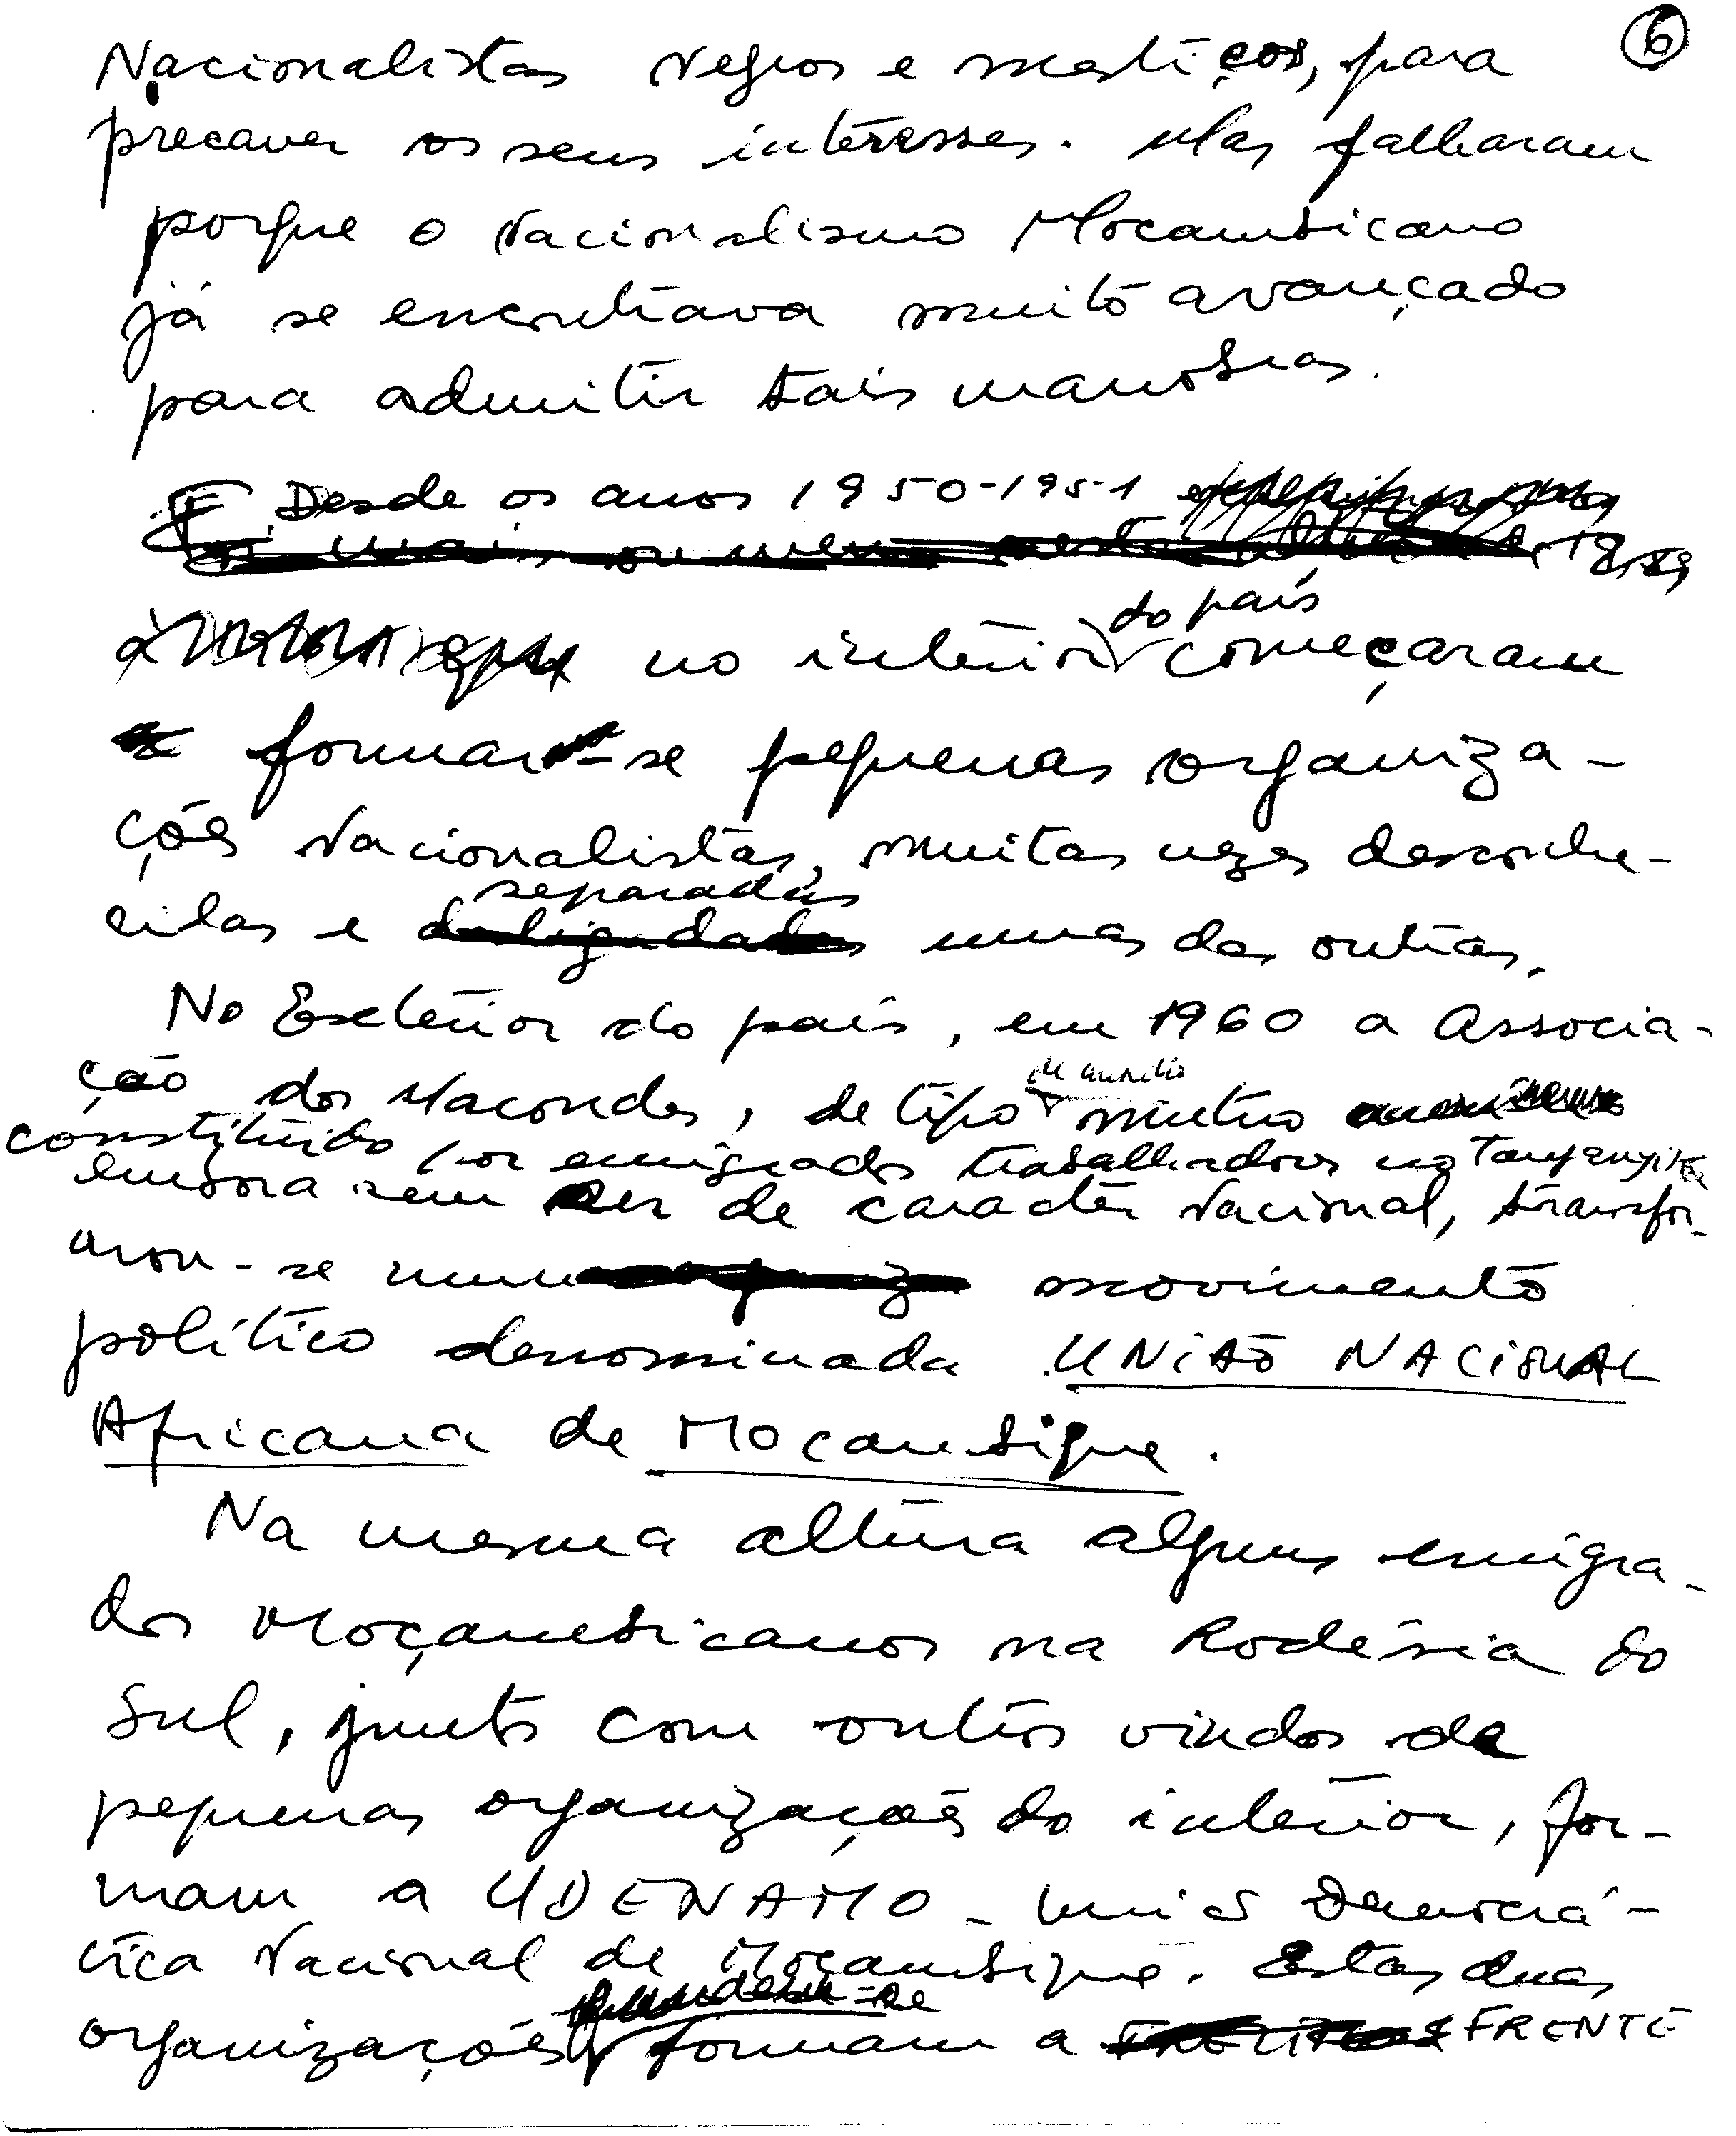 6
Nacionalistas Negros e mestiços, para
precaver os seus interesses. Mas falharam
porque o Nacionalismo Moçambicano
já se encontrava muito avançado
para admitir tais manobras.
Desde os anos 1950-1951
mais ou menos
do país
no interior começaram
formar-se pequenas organiza-
ções Nacionalistas, muitas vezes desconhe-
separadas
cidas e desligadas umas das outras.
No Exterior do país, em 1960 a Associa-
ção dos Macondes, de tipo de auxílio mútuo
constituído por emigrados trabalhadores no Tanganyika
embora sem ser de caracter Nacional, transfor-
mou-se num movimento
político denominada UNIÃO NACIONAL
Africana de Moçambique.
Na mesma altura alguns emigra-
dos Moçambicanos na Rodésia do
Sul, junto com outros vindos de
pequenas organizações do interior, for-
mam a UDENAMO - União Democrá-
tica Nacional de Moçambique. Estas duas
organizações formam a FRENTE